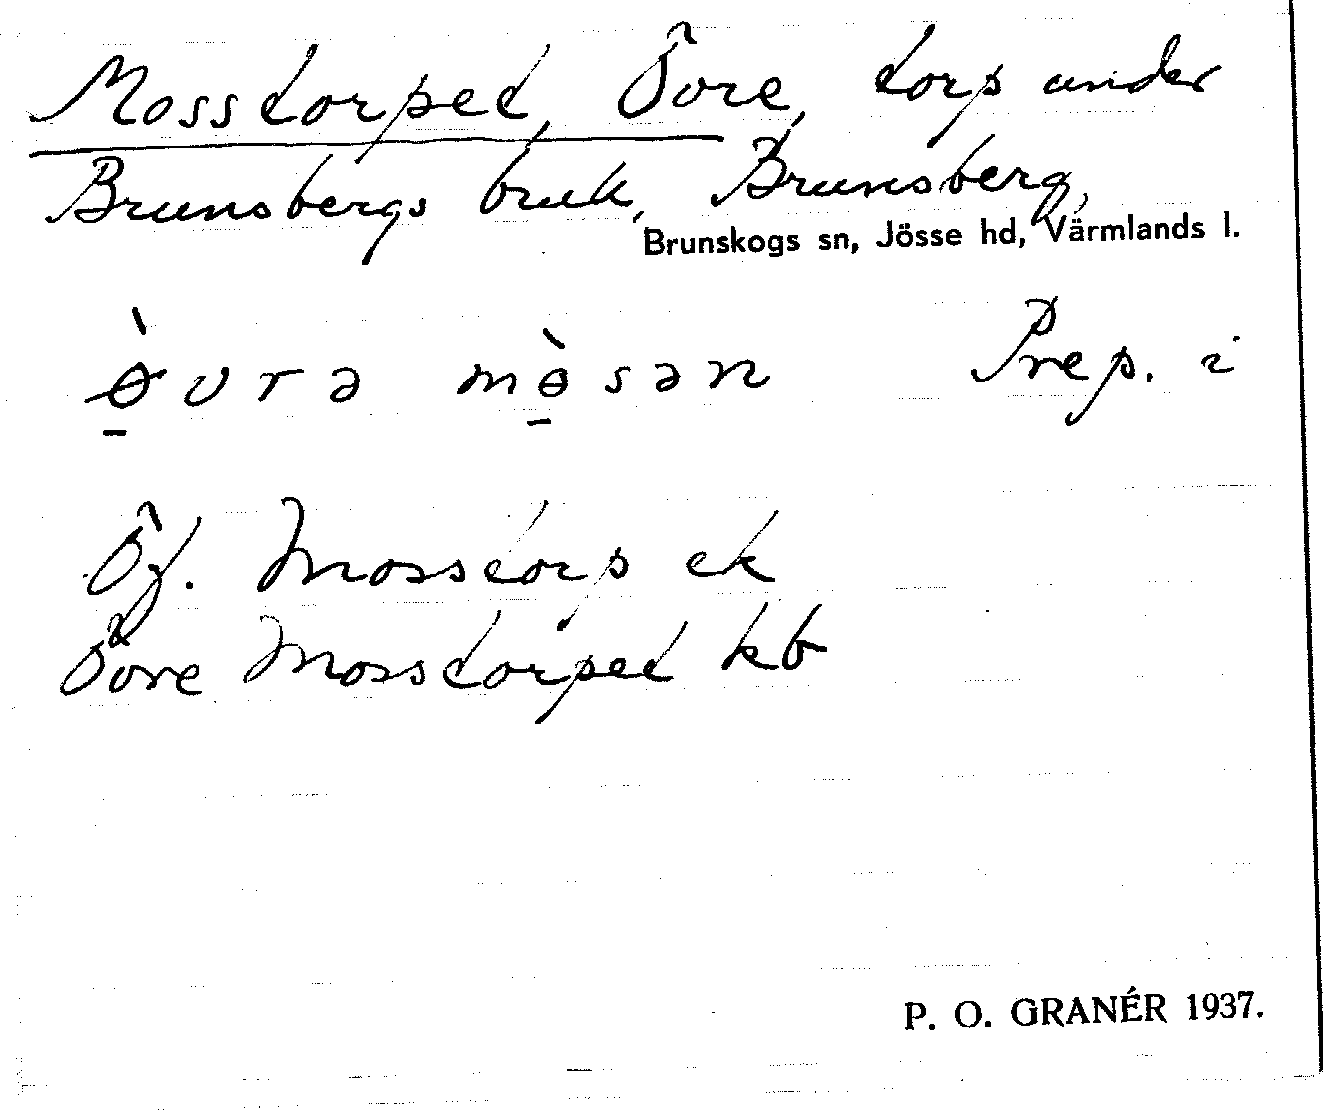 Mosstorpet, Övre, torp under
Brunsbergs bruk, Brunsberg,
Brunskogs sn, Jösse hd, Värmlands l.
ø̱̀vrə mɵ̱̀sən Prep. i
Öf. Mosstorp ek
Övre Mosstorpet kb
P. O. GRANÉR 1937.